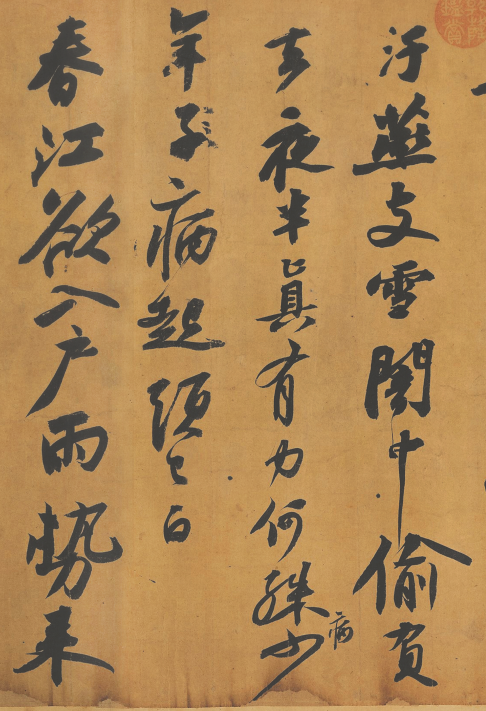 汙燕支雪闇中偷負
去夜半眞有力何殊病少
年子病起頭已白
春江欲入戶雨勢来